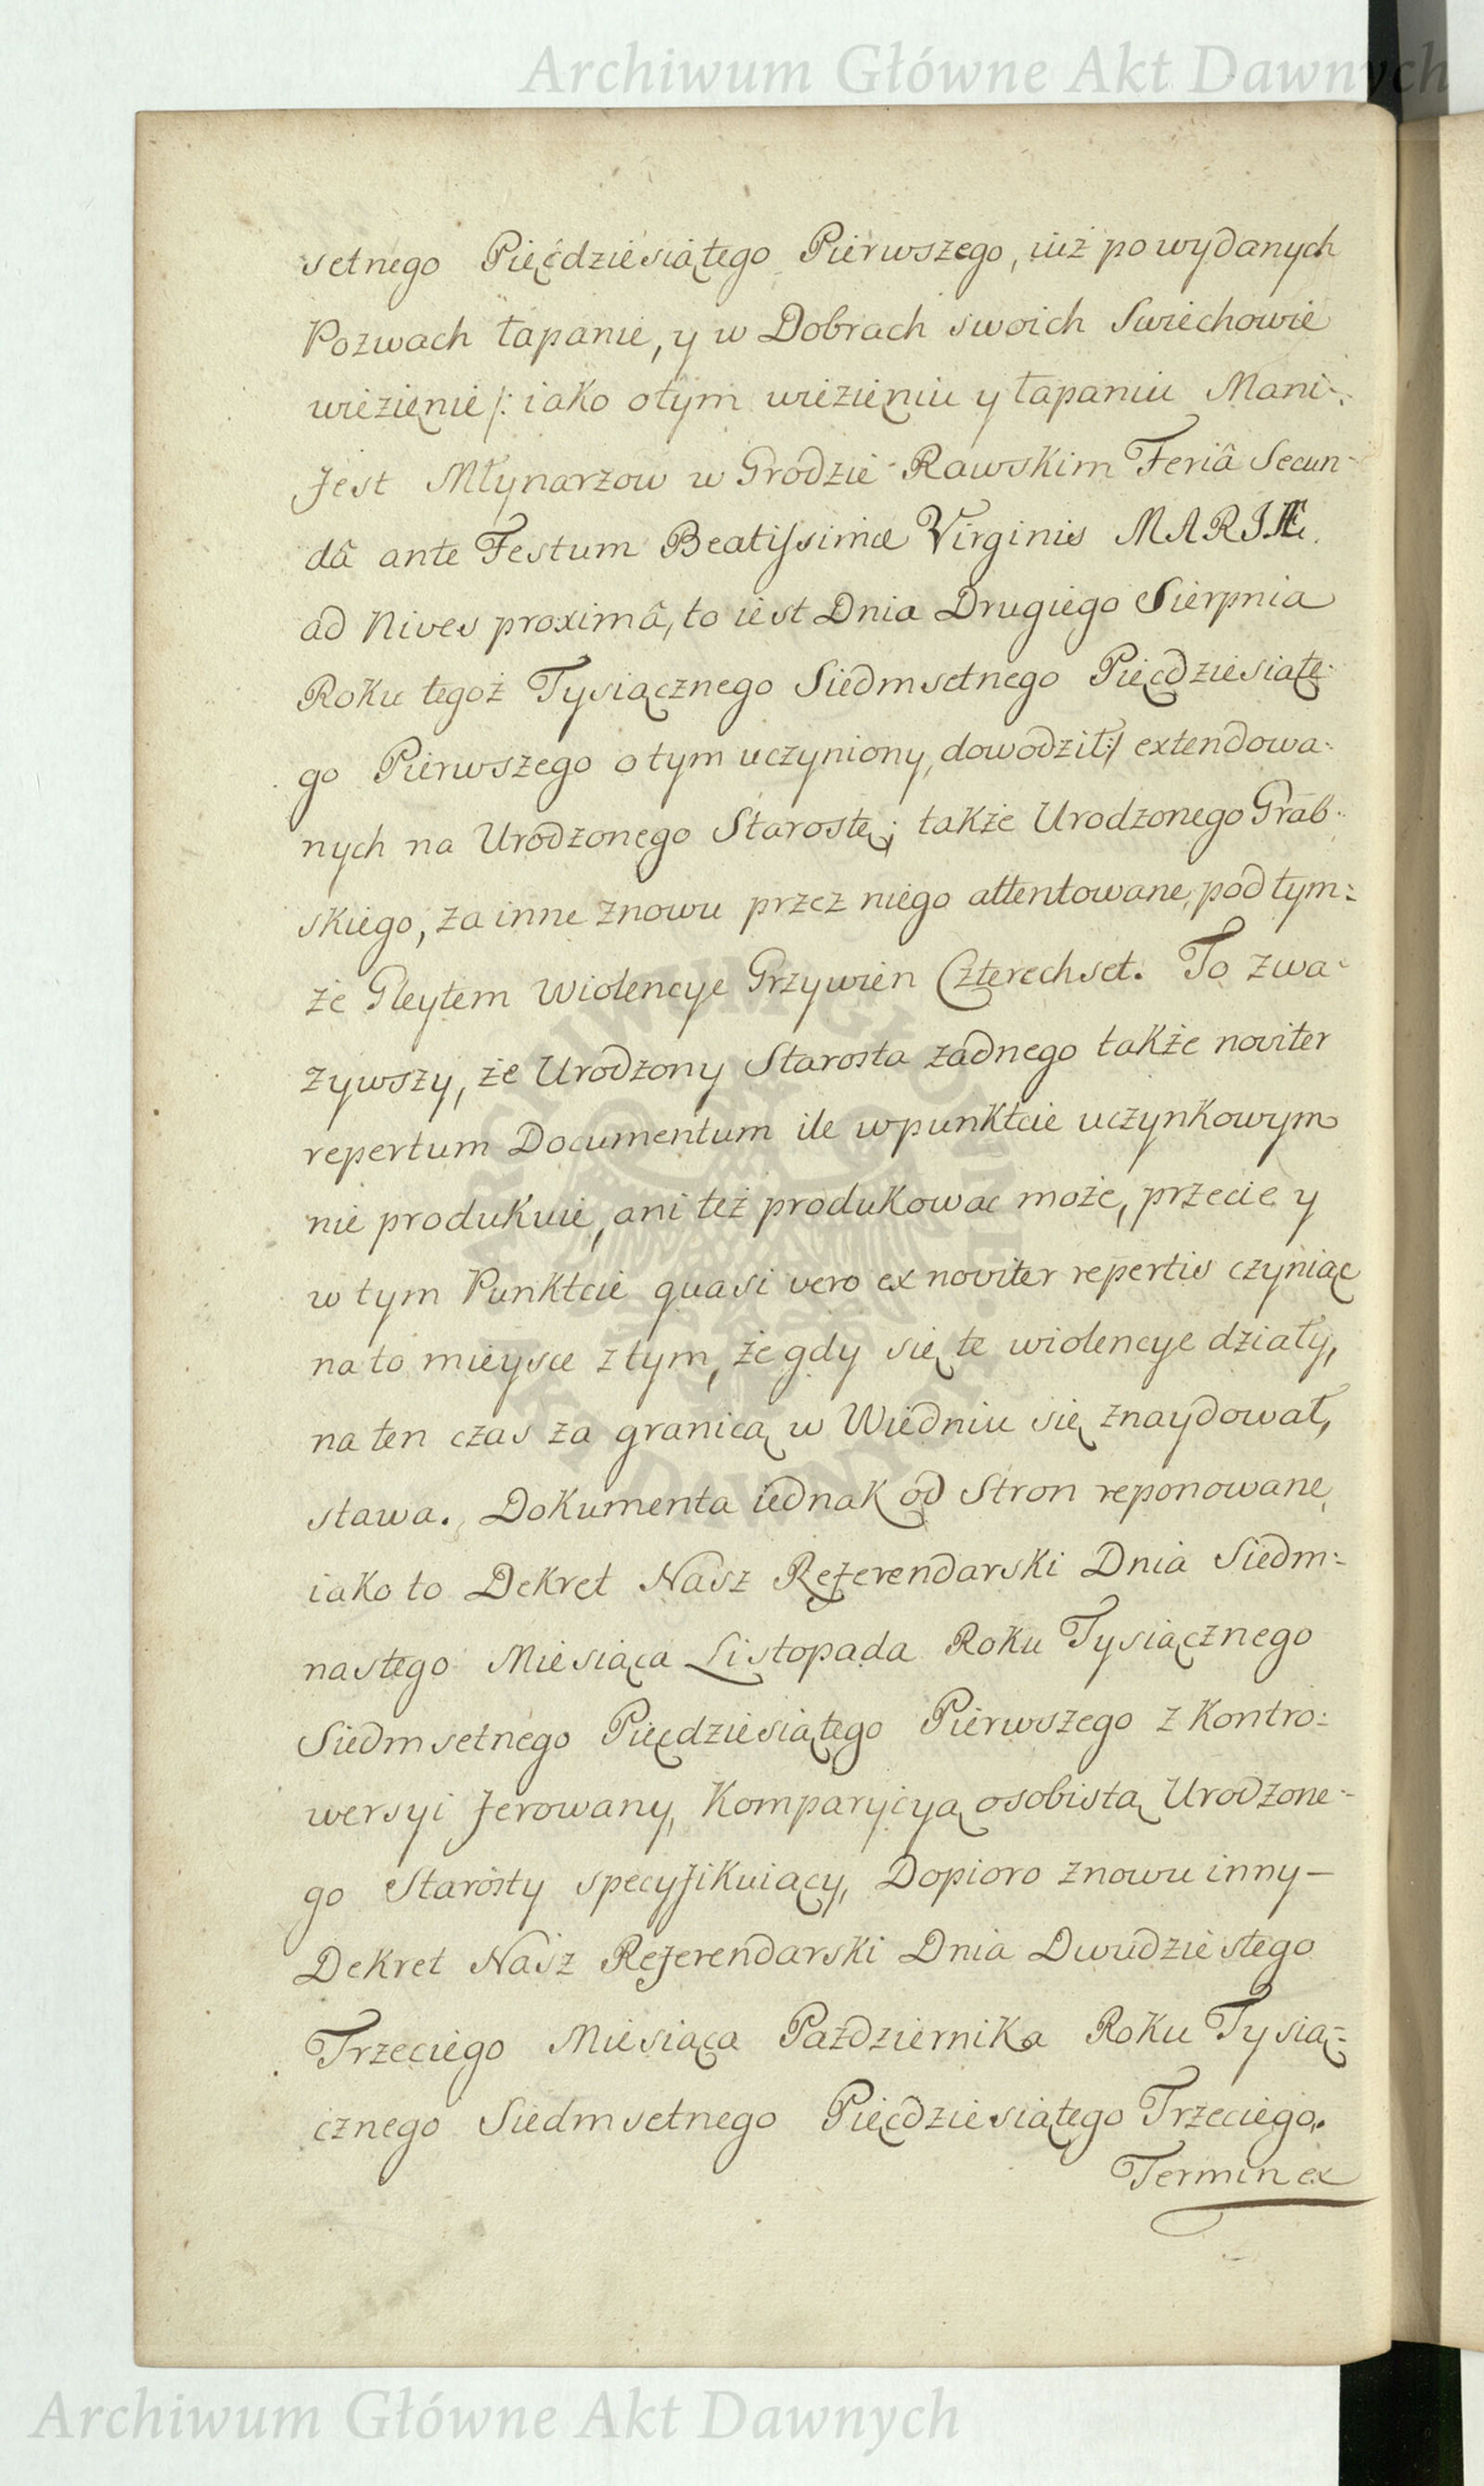 Archiwum Główne Akt Dawnych
setnego Pięćdziesiątego Pierwszego, iuż po wydanych
Pozwach łapanie, y w Dobrach swoich Swiechowie
więzięnie /: iako o tym więzięniu y łapaniu Mani-
fest Młynarzow w Grodzie Rawskim Feriâ Secun-
dâ ante Festum Beatissimæ Virginis MARIÆ
ad Nives proximâ, to iest Dnia Drugiego Sierpnia
Roku tegoż Tysiącznego Siedmsetnego Pięćdziesiąte-
go Pierwszego o tym uczyniony, dowodził :/ extendowa-
nych na Urodzonego Starostę; także Urodzonego Grab-
skiego, za inne znowu przez niego attentowane, pod tym-
że Gleytem wiolencye Grzywien Czterechset. To zwa-
żywszy, że Urodzony Starosta żadnego także noviter
repertum Documentum ile w punktcie uczynkowym
nie produkuie, ani też produkowac może, przecie y
w tym Punktcie quasi vero ex noviter repertis czyniąc
na to mieysce z tym, że gdy się te wiolencye działy,
na ten czas za granicą w Wiedniu się znaydował,
stawa. Dokumenta iednak od Stron reponowane
iako to Dekret Nasz Referendarski Dnia Siedm-
nastego Miesiąca Listopada Roku Tysiącznego
Siedmsetnego Pięcdziesiątego Pierwszego z Kontro-
wersyi ferowany, Komparycyą osobistą Urodzone-
go Starosty specyfikuiący, Dopioro znowu inny
Dekret Nasz Referendarski Dnia Dwudziestego
Trzeciego Miesiąca Pazdziernika Roku Tysią-
cznego Siedmsetnego Pięcdziesiątego Trzeciego.
Termin ex
Archiwum Główne Akt Dawnych